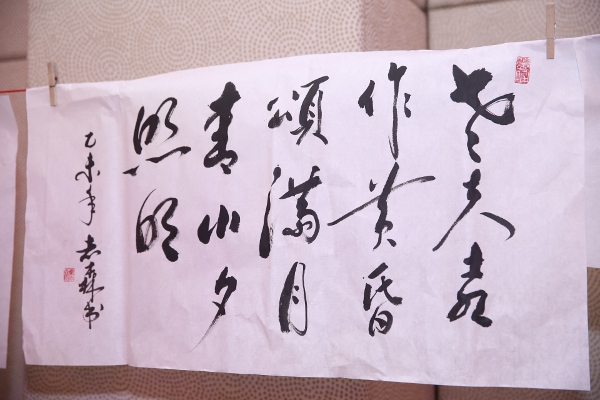 老夫喜
作黄昏
頌満目
青山夕
照明
乙未年 志森书